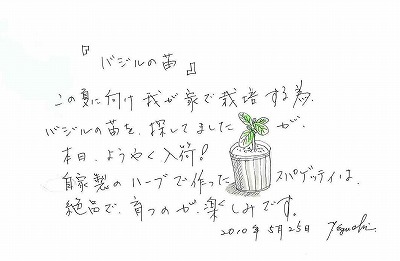 『バジルの苗』
この夏に向け我が家で栽培する為、
バジルの苗を、探してましたが、
本日、ようやく入荷!
自家製のハーブで作ったスパゲッティは、
絶品で、育つのが、楽しみです。
2010年5月25日